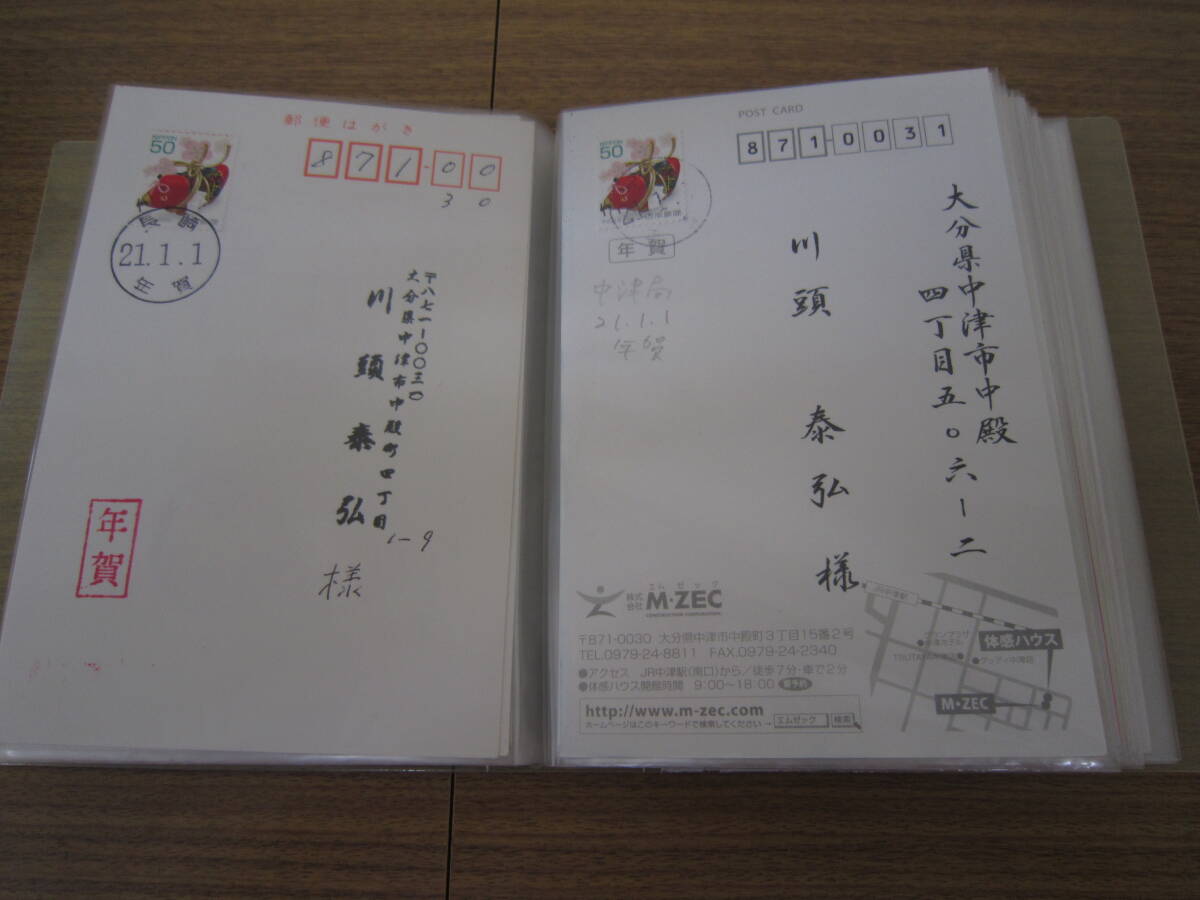 郵便はがき
NIPPON
50
871-00
30
長崎
21.1.1
年賀
〒八七一-〇〇三〇
大分県中津市中殿町四丁目
1-9
川頭泰弘
様
年賀
POST CARD
NIPPON
50
871-0031
年賀
中津局
21.1.1
年賀
大分県中津市中殿
四丁目五〇六-二
川頭 泰弘 様
エムゼック
株式会社 M・ZEC
CONSTRUCTION CORPORATION
〒871-0030 大分県中津市中殿町3丁目15番2号
TEL.0979-24-8811 FAX.0979-24-2340
●アクセス JR中津駅(南口)から/徒歩7分・車で2分
●体感ハウス開館時間 9:00〜18:00 要予約
http://www.m-zec.com
ホームページはこのキーワードで検索してください→ エムゼック 検索
JR中津駅
体感ハウス
M・ZEC